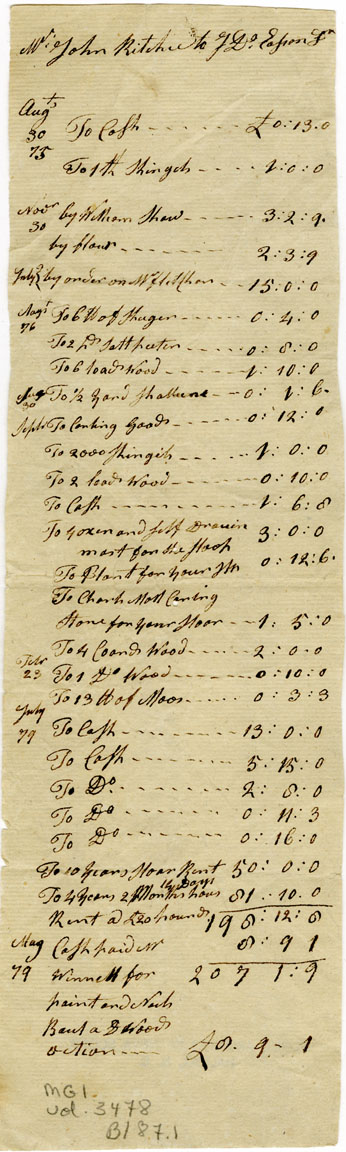 Mr. John Ritchie to J Do. Easson Dr
Augts
30 To Cash - - - - £0:13.0
75
To 1th Shingels - - - 1:0:0
Novr by William Shaw - - - 3:2:9.
30
by flour - - - - 2:3:9
July by order on Mr - - - 15:0:0
Augt To 6 lb of Shuger - - - 0:4:0
76
To 2 pd Saltpeeter - - 0:8:0
To 6 loads Wood - - - 1:10:0
Aug To 1/2 yard - - - 0:1:6.
30
Septr To Goods - - - 0:12:0
To 2000 Shingels - - - 1:0:0
To 2 loads Wood - - - 0:10:0
To Cash - - - - 1:6:8
To 4 oxen and self Drawin 3:0:0
mast for the Sloop
To Plank for your 0:12:6.
To Charls
Stone for your - 1:5:0
Febr To 4 Coords Wood - - - 2:0:0
23 To 1 Do Wood - - - - 0:10:0
To 13 lb of - - - - 0:3:3
July
79 To Cash - - - - 13:0:0
To Cash - - - - 5:15:0
To Do - - - - 2:8:0
To Do - - - - 0:11:3
To Do - - - - 0:16:0
To 10 Years Rent 50:0:0
To 4 Years 2 Months 14 Days hous 81:10.0
Rent a £20 pounds 198:12:8
Aug Cash paid Mr 8:9 1
79 Winnett for 207 1:9
paint and Nails
Baut a
action - - - £8.9-1
MG1.
vol. 3478
B187.1